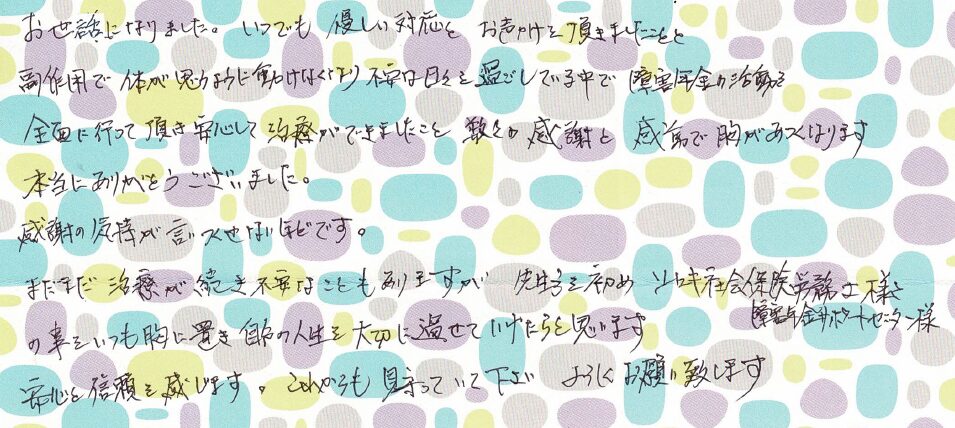 お世話になりました。いつでも 優しい対応と お声かけを頂きましたことと
副作用で 体が思うように動けなくなり 不安な日々を過ごしている中で 障害年金の活動を
全面に行って頂き 安心して 治療ができましたこと 数々の感謝と 感動で胸があつくなります
本当にありがとうございました。
感謝の気持が言いつくせないほどです。
まだまだ 治療が続き 不安なこともありますが 先生を初め ソロキ社会保険労務士様
障害年金サポートセンター様
の事をいつも胸に置き 自分の人生を大切に過せて いけたらと思います
安心と信頼を感じます。これからも 見守っていて下さい よろしくお願い致します